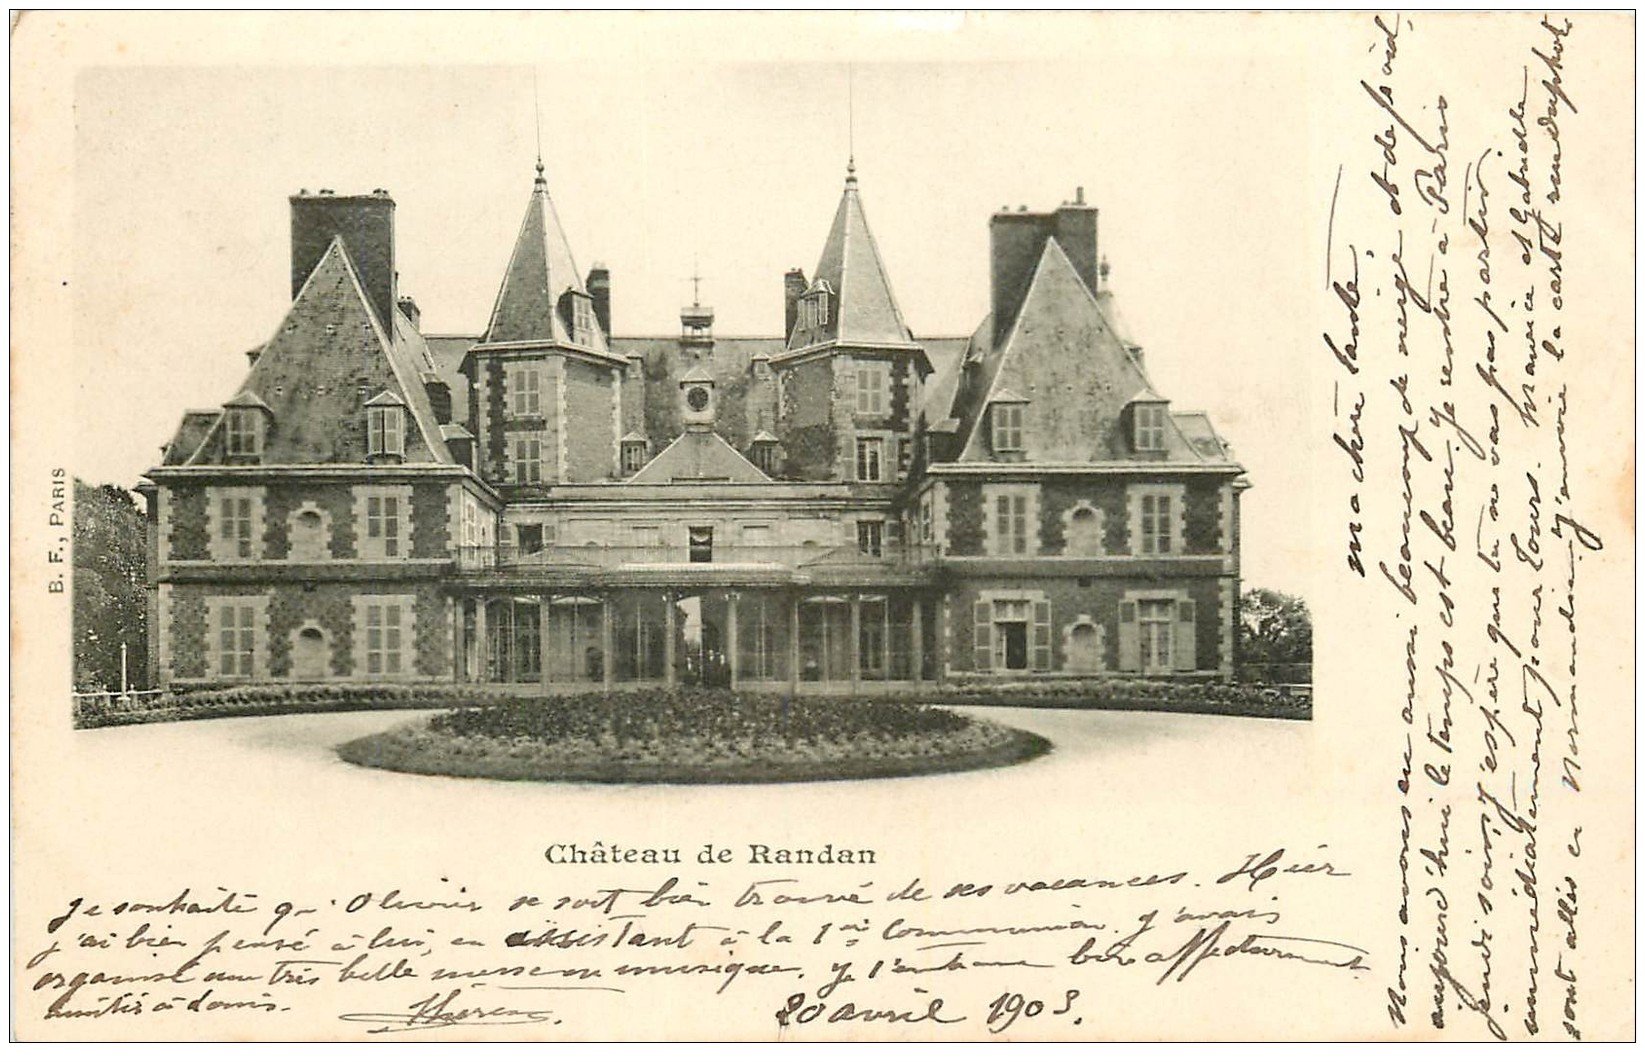 B. F., PARIS
Château de Randan
Ma chère tante,
Nous avons eu aussi beaucoup de neige et de froid,
aujourd'hui le temps est beau. Je rentre à Paris
jeudi soir, j'espère que tu ne vas pas partir
immédiatement pour Tours. Maurice et Gabrielle
sont allés en Normandie. J'envoie la carte
Je souhaite qu'Olivier se soit bien trouvé de ses vacances. Hier
j'ai bien pensé à lui, en assistant à la 1re Communion. J'avais
organisé une très belle messe en musique. Je t'embrasse bien affectueusement
amitiés à
20 avril 1903.